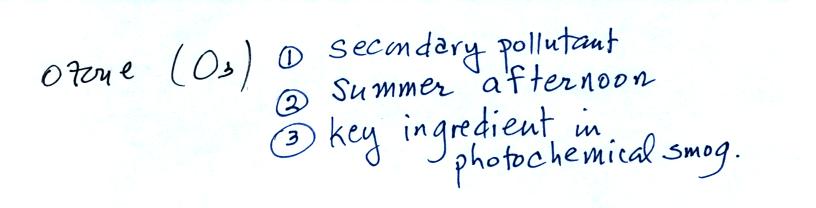 Ozone (O₃) ① secondary pollutant
② summer afternoon
③ key ingredient in
photochemical smog.